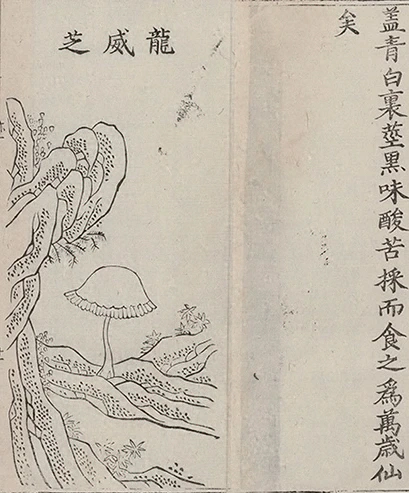 盖青白裏莖黒味酸苦採而食之爲萬歳仙
矣
龍威芝